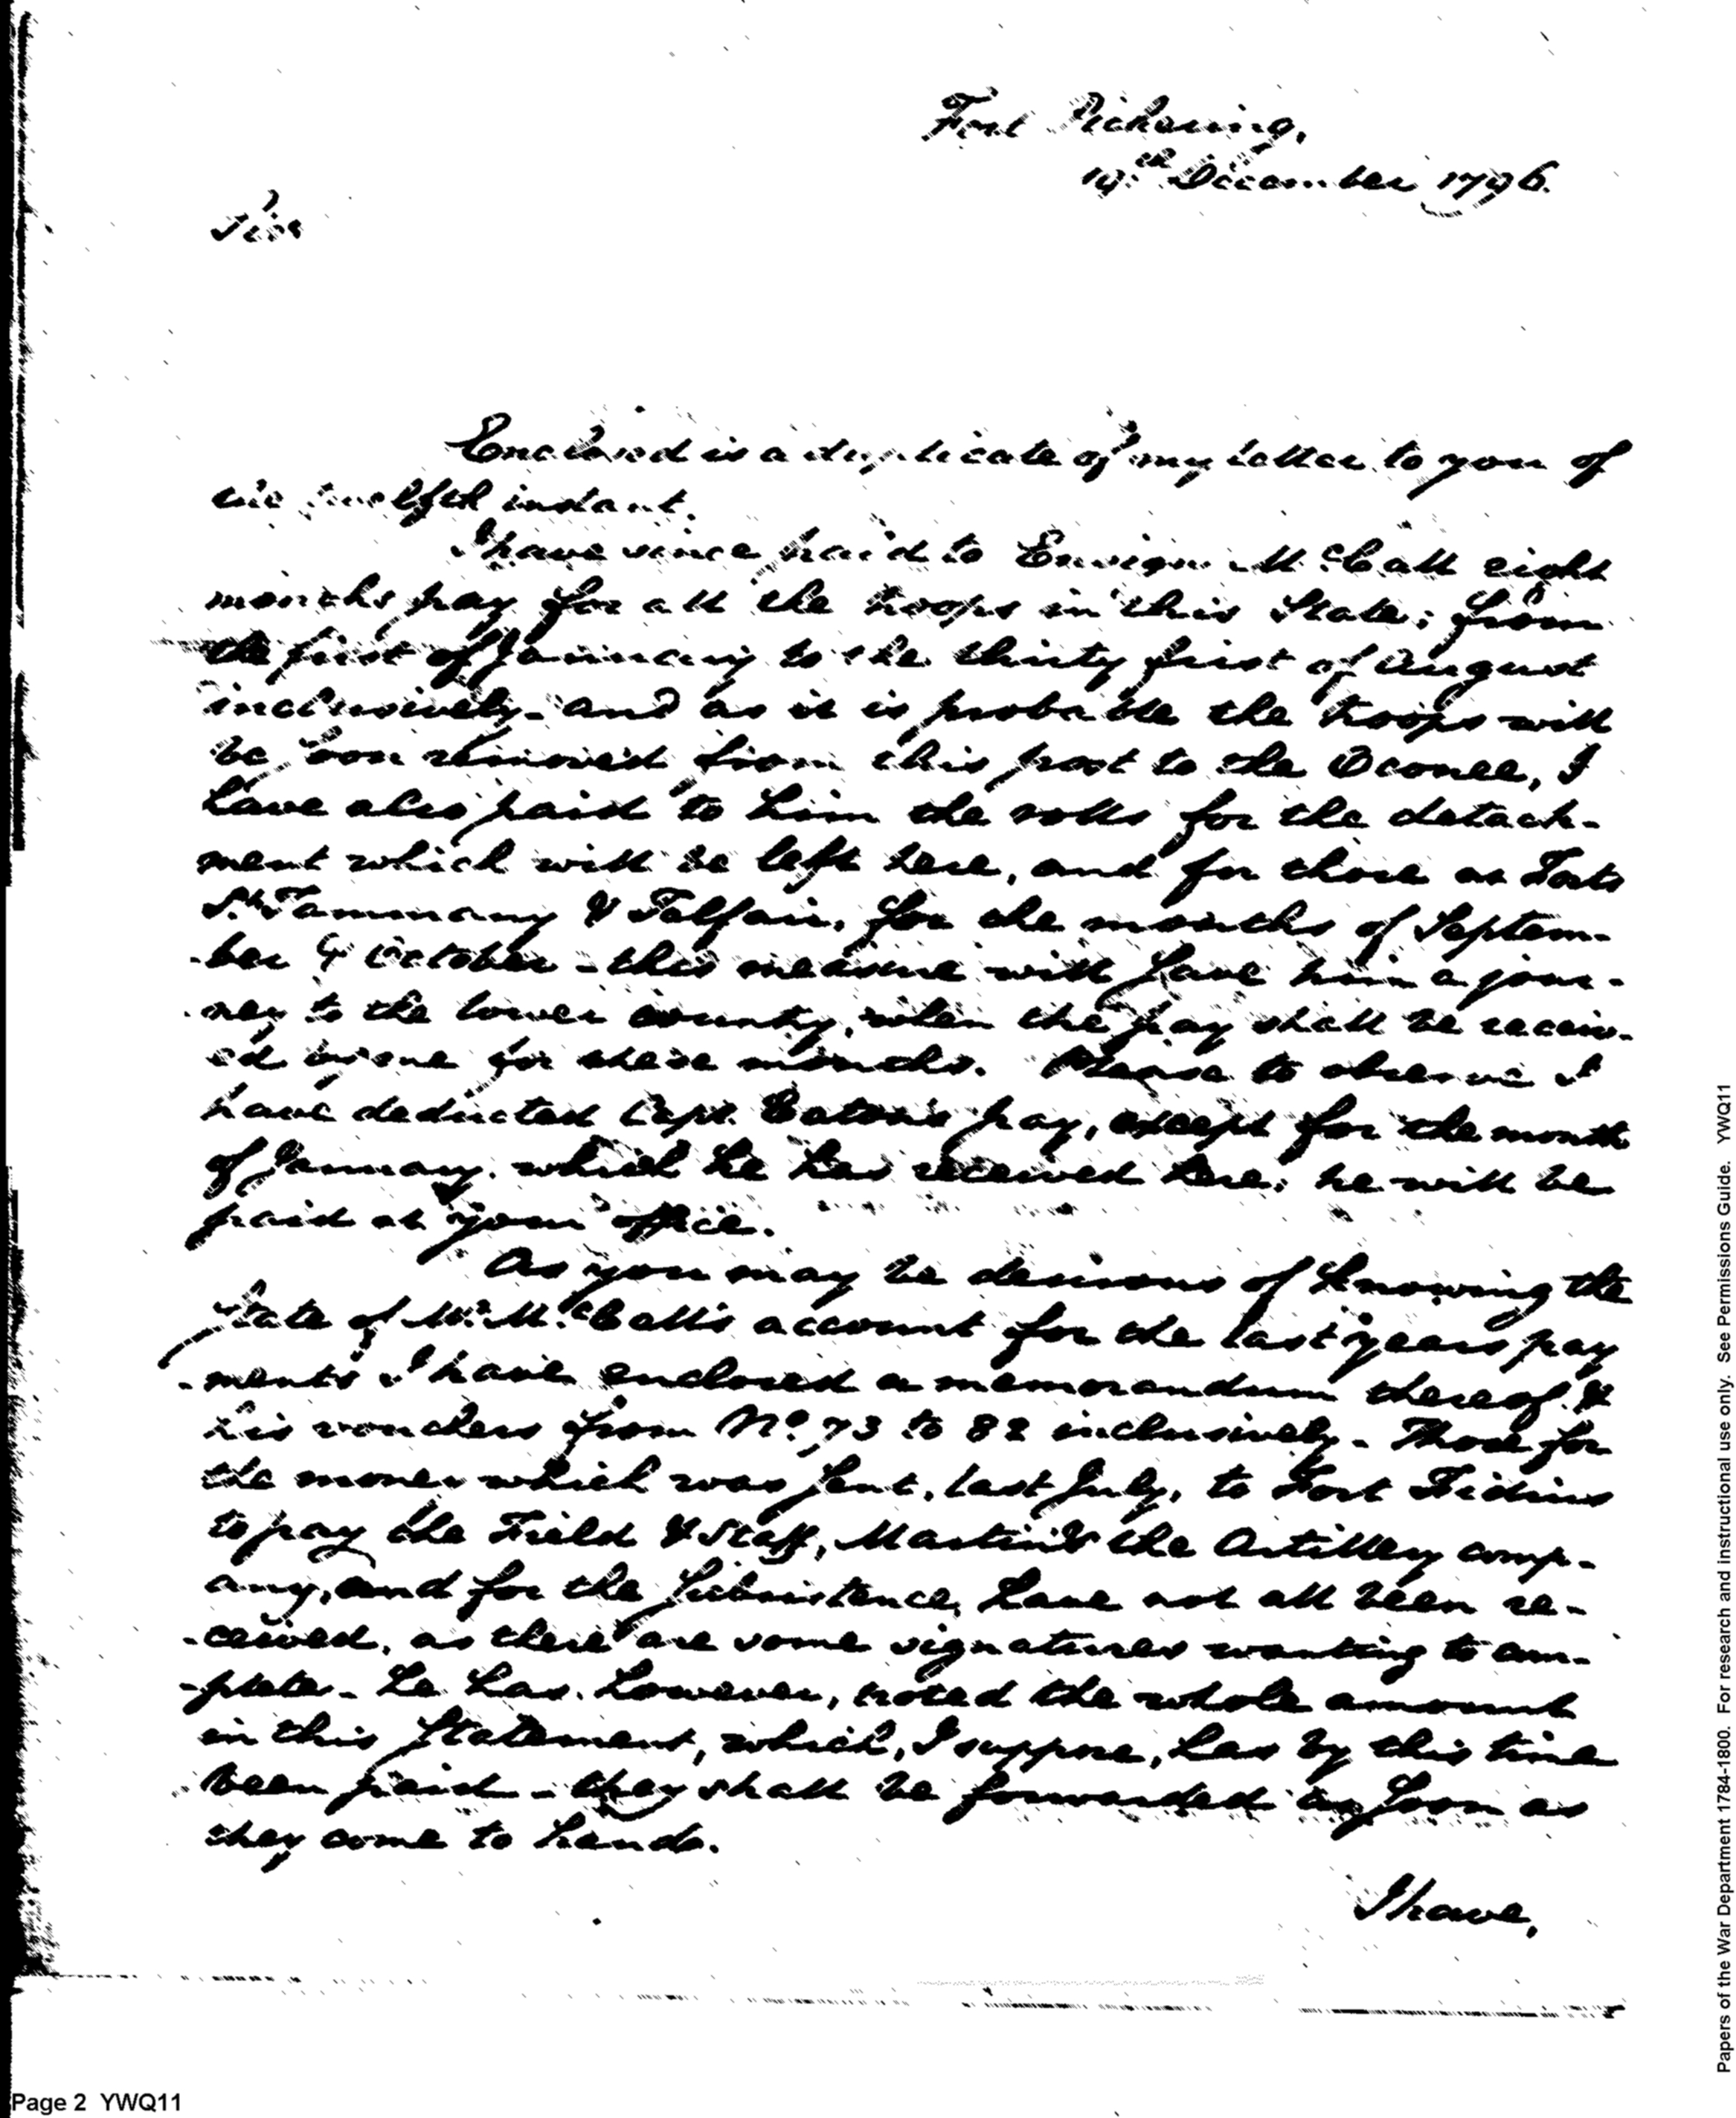 Fort Pickering,
19th December 1796.
Sir
Enclosed is a duplicate of my letter to you of
the twelfth instant.
I have since paid to Ensign McCall eight
months pay for all the troops in this State; from
the first of January to the thirty first of August
inclusively - and as it is probable the troops will
be soon removed from this post to the Oconee, I
have also paid to him the rolls for the detach-
ment which will be left here, and for those at Forts
St. Tammany & Telfair, for the months of Septem-
-ber & October - this measure will save him a jour-
-ney to the lower country, when the pay shall be receiv-
ed by me for these months. Please to observe I
have deducted Capt. Eaton's pay, except for the month
of January, which he has received here; he will be
paid at your office.
As you may be desirous of knowing the
state of Mr. McCall's account for the last years pay
-ments I have enclosed a memorandum thereof &
his vouchers from No. 73 to 82 inclusively - Those for
the money which was sent, last July, to Fort Fidius
to pay the Field & Staff, Martin's & the Artillery comp-
any, and for the Subsistence, have not all been re-
-ceived, as there are some signatures wanting to com-
-plete - he has, however, noted the whole amount
in this statement, which, I suppose, has by this time
been paid - they shall be forwarded as soon as
they come to hands.
I have,
Page 2 YWQ11
Papers of the War Department 1784-1800. For research and instructional use only. See Permissions Guide. YWQ11